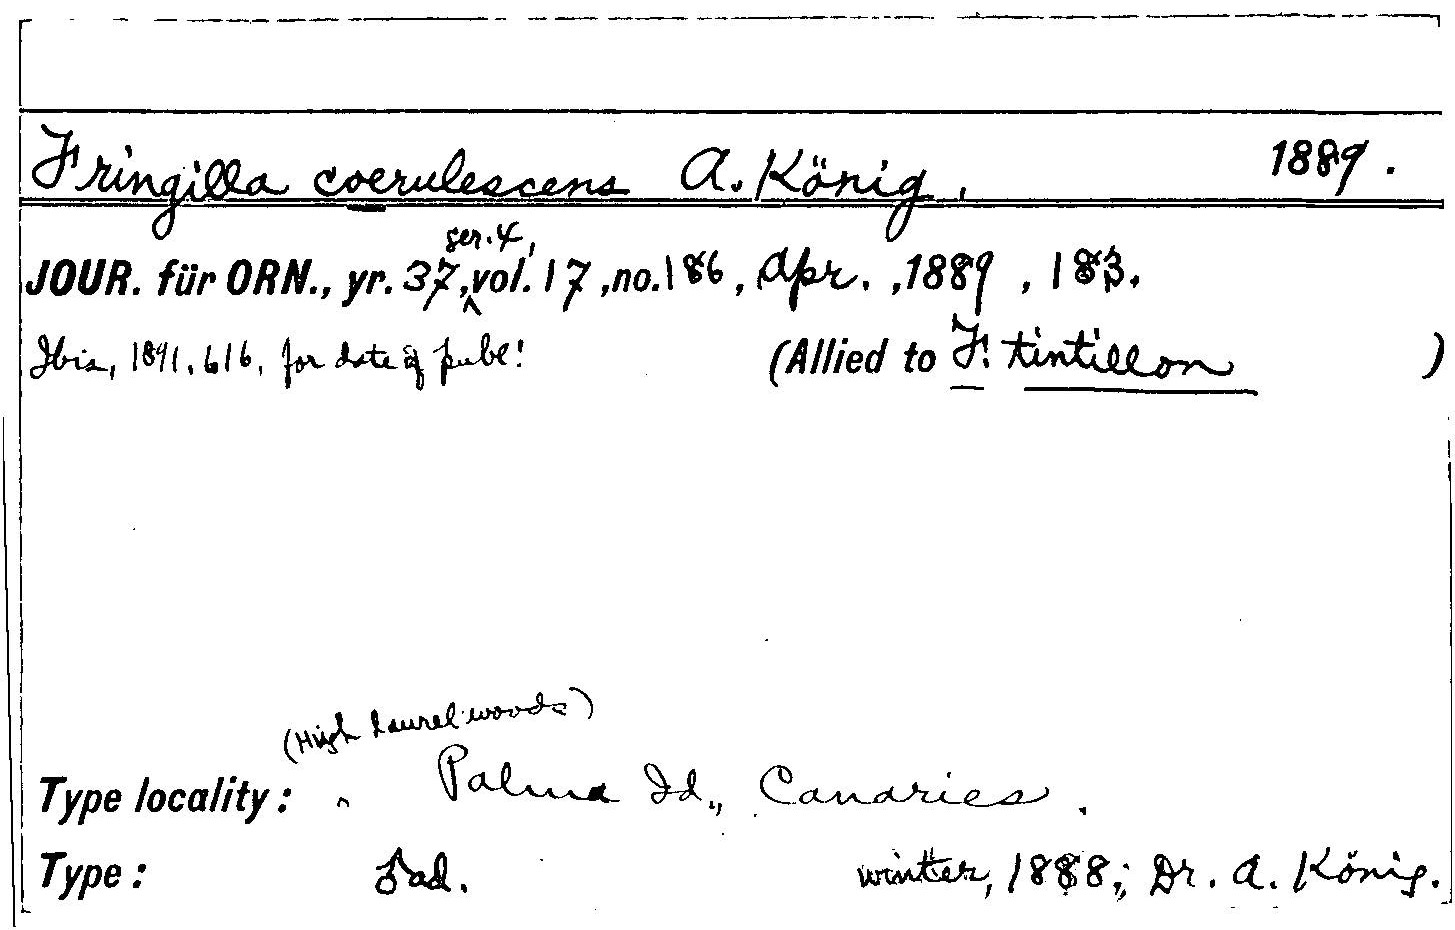 Fringilla coerulescens A. König. 1889.
ser. 4,
JOUR. für ORN., yr. 37, vol. 17, no. 186, Apr., 1889, 183.
Ibis, 1891, 616, for date of publ! (Allied to F. tintillon )
(High laurel woods)
Type locality: ^ Palma Id., Canaries.
Type: ♂ ad. winter, 1888; Dr. A. König.